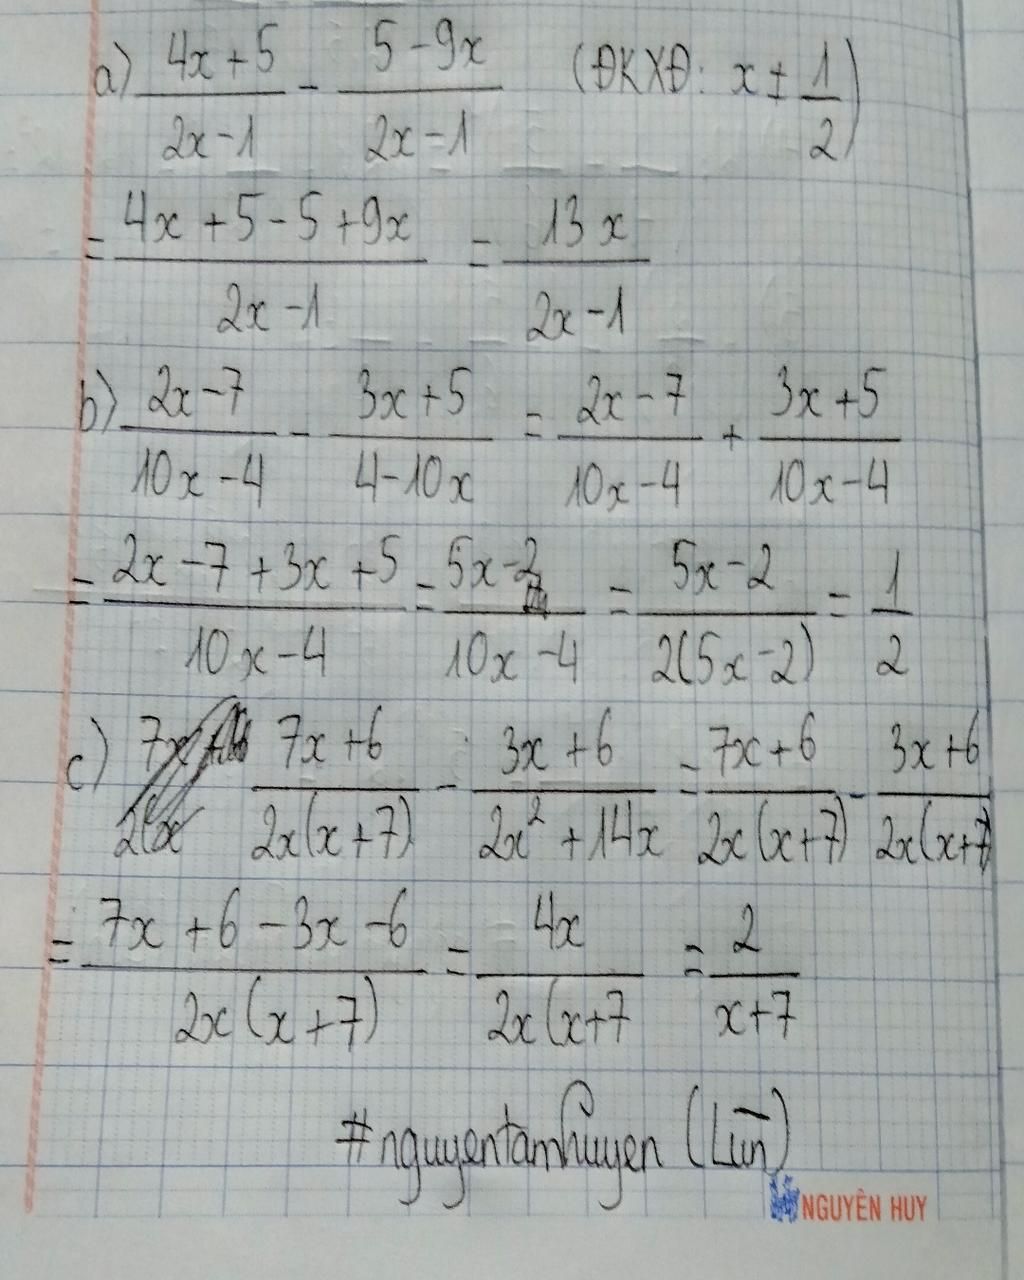 a) (4x+5)/(2x-1) - (5-9x)/(2x-1) (ĐKXĐ: x ≠ 1/2)
= (4x+5-5+9x)/(2x-1) = 13x/(2x-1)
b) (2x-7)/(10x-4) - (3x+5)/(4-10x) = (2x-7)/(10x-4) + (3x+5)/(10x-4)
= (2x-7+3x+5)/(10x-4) = (5x-2)/(10x-4) = (5x-2)/(2(5x-2)) = 1/2
c) (7x+6)/(2x(x+7)) - (3x+6)/(2x²+14x) = (7x+6)/(2x(x+7)) - (3x+6)/(2x(x+7)
= (7x+6-3x-6)/(2x(x+7)) = 4x/(2x(x+7) = 2/(x+7)
#nguyentamhuyen (Lùn)
NGUYÊN HUY